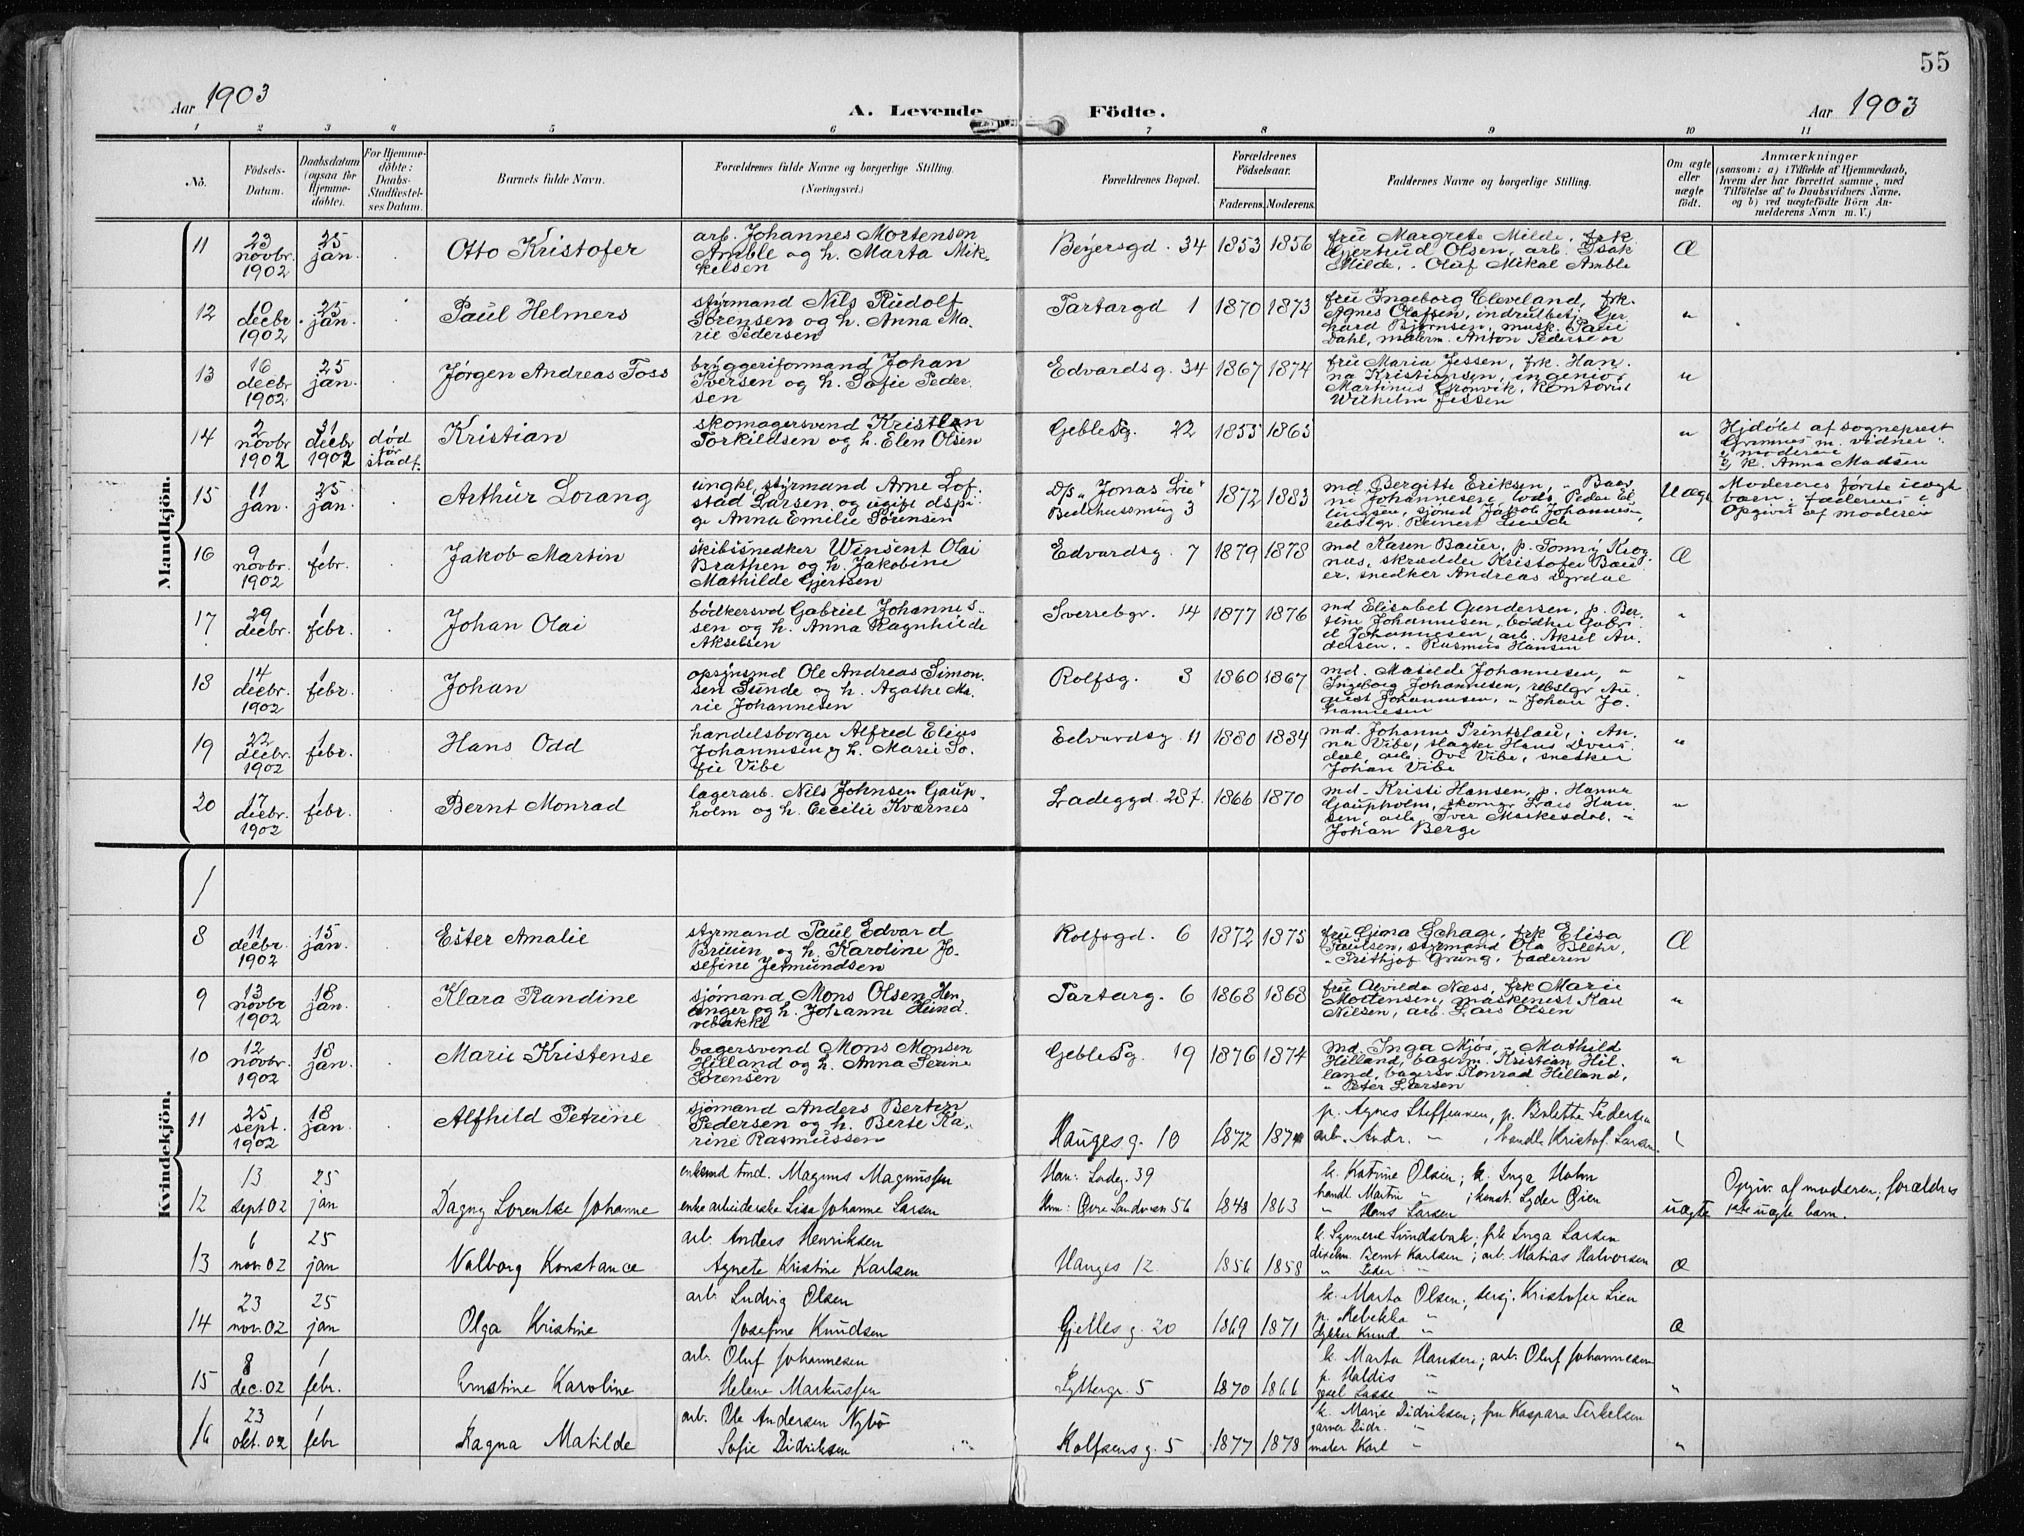 55
Aar 1903
A. Levende Födte.
Aar 1903
1 2 3 4 5 6 7 8 9 10 11
No.
Födsels-Datum.
Daabsdatum (ogsaa for Hjemme-döbte).
For Hjemme-döbte: Daabs-Stadfæstel-ses Datum.
Barnets fulde Navn.
Forældrenes fulde Navne og borgerlige Stilling. (Næringsvei.)
Forældrenes Bopæl.
Forældrenes Födselsaar.
Faderens. Moderens.
Faddernes Navne og borgerlige Stilling.
Om ægte eller uægte födt.
Anmærkninger
(saasom: a) i Tilfælde af Hjemmedaab, hvem der har forrettet samme, med Tilföielse af to Daabsvidners Navne, og b) ved uægtefödte Börn Anmelderens Navn m. V.)
Mandkjön.
11 23 novbr. 1902 25 jan. Otto Kristofer
arb. Johannes Mortensen
Amble og h. Marta Mik-
kelsen
Beyersgd. 34 1853 1856
fru Margrete Milde, frk.
Gjertrud Olsen, arb. Isak
Milde, " Oluf Mikal Amble
Æ
12 10 decbr. 1902 25 jan. Paul Helmers
styrmand Nils Rudolf
Sørensen og h. Anna Ma-
rie Pedersen
Tartargd 1 1870 1873
fru Ingeborg Cleveland, frk.
Agnes Olafsen, indrulbetj. Ger-
hard Bjørnsen, musk. Paul
Dahl, malerm. Anton Pedersen
"
13 16 decbr 1902 25 jan. Jørgen Andreas Foss
bryggeriformand Johan
Iversen og h. Sofie Peder-
sen
Edvardsg. 34 1867 1874
fru Maria Jessen, frk. Han-
na Kristiansen, ingeniør
Martinus Grønvik, kontorist
Wilhelm Jessen
"
14 2 novbr 1902 31 decbr 1902 død før stadf. Kristian
skomagersvend Kristian
Torkildsen og h. Elen Olsen
Geblesg. 22 1855 1865
"
Hjdøbt af sogneprest
Grimnes m. vidner:
1, moderen
2, k. Anna Madsen
15 11 jan. 25 jan. Arthur Lorang
ungk. styrmand Arne Lof-
stad Larsen og ugift dspi-
ge Anna Emilie Sørensen
D/s "Jonas Lie"
Bedehussmug 3 1872 1883
md Bergitte Eriksen, " Baar-
ni Johannesen, lods Peder El-
lingsen, sjømd Jakob Johannesen,
rebslgr. Reinert Lunde
Uægt
Moderens første uægte
barn; faderens
Opgivet af moderen
16 9 novbr. 1902 1 febr. Jakob Martin
skibssnedker Winsent Olai
Brathen og h. Jakobine
Mathilde Gjertsen
Edvardsg. 7 1879 1878
md Kasen Bauer, p. Tommy Krog-
næs, skrædder Kristofer Bau-
er, snedker Andreas Dyrdal
Æ
17 29 decbr. 1 febr. Johan Olai
bødkersvd Gabriel Johannes-
sen og h. Anna Ragnhilde
Akselsen
Sverresgr. 14 1877 1876
md Elisabet Gundersen, p. Ber-
tine Johannesen, bødker Gabri-
el Johannesen, arb. Aksel An-
dersen, " Rasmus Hansen
"
18 14 decbr. 1902 1 febr. Johan
opsynsmd Ole Andreas Simon-
sen Sunde og h. Agathe Ma-
rie Johannesen
Rolfsg. 3 1860 1867
md. Matilde Johannesen, "
Ingeborg Johannesen, rebslgr Au-
gust Johannesen, " Johan Jo-
hannesen
"
19 22 decbr. 1902 1 febr. Hans Odd
handelsborger Alfred Elias
Johannesen og h. Marie So-
fie Vibe
Edvardsg. 11 1880 1884
md. Johanne Printzlau, " An-
na Vibe, slagter Hans Dvers-
dal, arb. Ove Vibe, snedker
Johan Vibe
"
20 17 decbr. 1902 1 febr. Bernt Monrad
lagerarb. Nils Johnsen Gaup-
holm og h. Cecilie Kværnes
Ladeggd. 287. 1866 1870
md. Kristi Hansen, p. Hanna
Gaupholm, skomgr Lars Han-
sen, arb. Iver Markesdal, "
Johan Berge
"
Kvindekjön.
8 11 decbr. 1902 15 jan. Ester Amalie
styrmand Paul Edvard
Bruun, og h. Karoline Jo-
sefine Jermundsen
Rolfsgd. 6 1872 1875
fru Gjona Schage, frk Elisa
Paulsen, styrmand Ole Blehr,
" Frithjof Grung, faderen
Æ
9 13 novbr 1902 18 jan. Klara Randine
sjømand Mons Olsen Hen-
anger og h. Johanne Hund-
vebakke
Tartarg. 6 1868 1868
fru Alvilde Næss, frk Marie
Mortensen, maskenist Karl
Nilsen, arb. Lars Olsen
"
10 12 novbr. 1902 18 jan. Marie Kristense
bagersvend Mons Monsen
Hilland og h. Anna Serine
Sørensen
Geblesg. 19 1876 1874
md. Inga Mjøs, " Mathild
Hilland, bagerm. Kristian Hil-
land, bagersv. Konrad Hilland,
" Peter Larsen
"
11 25 sept. 1902 18 jan. Alfhild Petrine
sjømand Anders Berten
Pedersen og h. Berte Ka-
rine Rasmussen
Hauges g. 10 1872 187
p. Agnes Steffensen, p. Berlette Pedersen
arb. Andr. " , handl. Kristof. Larsen.
"
12 13 sept 02 25 jan Dagny Lorentse Johanne
enkemd tmd. Magnus Magnussen
enke arbeiderske Lise Johanne Larsen
Han: Ladeg. 39
Hun: Øvre Sandviken 56 1848 1863
k. Katrine Olsen; k. Inga Holm
handl Martin " ; konst. Lyder Øien
" Hans Larsen
uægte
Opgiv. af moderen; forældres
1ste uægte barn.
13 6 nov. 02 25 jan Valborg Konstance
arb. Anders Henriksen
Agnete Kristine Karlsen
Hauges 12 1856 1858
k. Synneve Sundsbak; frk Inga Larsen
dixelm. Bernt Karlsen; arb. Matias Halvorsen
" Peder "
Æ
14 23 nov. 02 25 jan Olga Kristine
arb. Ludvig Olsen
Josefine Knudsen
Gjelles g. 20 1869 1871
k. Marta Olsen; sersj. Kristofer Lien
p. Rebekka "
Lykter Knud. "
Æ
15 8 dec. 02 1 febr. Ernstine Karoline
arb. Oluf Johannesen
Helene Markussen
Lyttergr. 5 1870 1866
k. Marta Hansen; arb. Oluf Johannesen
p. Haldis "
gsel Lasse "
"
16 23 okt. 02 1 febr Ragna Matilde
arb. Ole Andersen Nybø
Sofie Didriksen "
Rolfsens g. 5 1877 1878
k. Marie Didriksen; fru Kaspara Terkelsen
garver Didr. "
maler Karl "
"